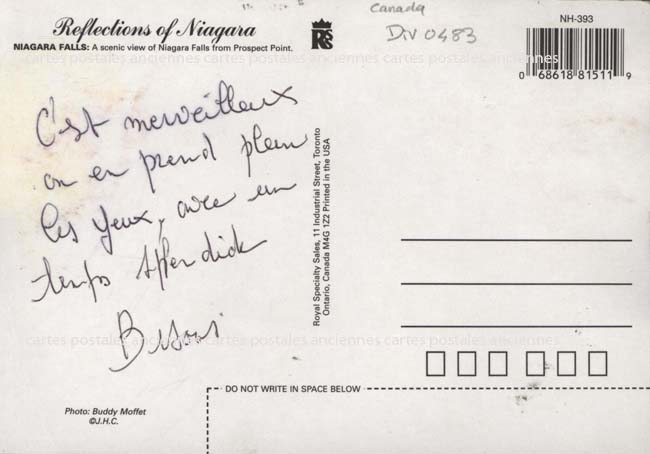 Reflections of Niagara
NIAGARA FALLS: A scenic view of Niagara Falls from Prospect Point.
RSS
Canada
Div 0483
NH-393
0 68618 81511 9
cartes postales anciennes cartes postales anciennes cartes postales anciennes cartes postales anciennes
C'est merveilleux
on en prend plein
les yeux, avec un
temps splendide
Bisous
Royal Specialty Sales, 11 Industrial Street, Toronto
Ontario, Canada M4G 1Z2 Printed in the USA
cartes postales anciennes cartes postales anciennes cartes postales anciennes cartes postales anciennes
DO NOT WRITE IN SPACE BELOW
Photo: Buddy Moffet
©J.H.C.